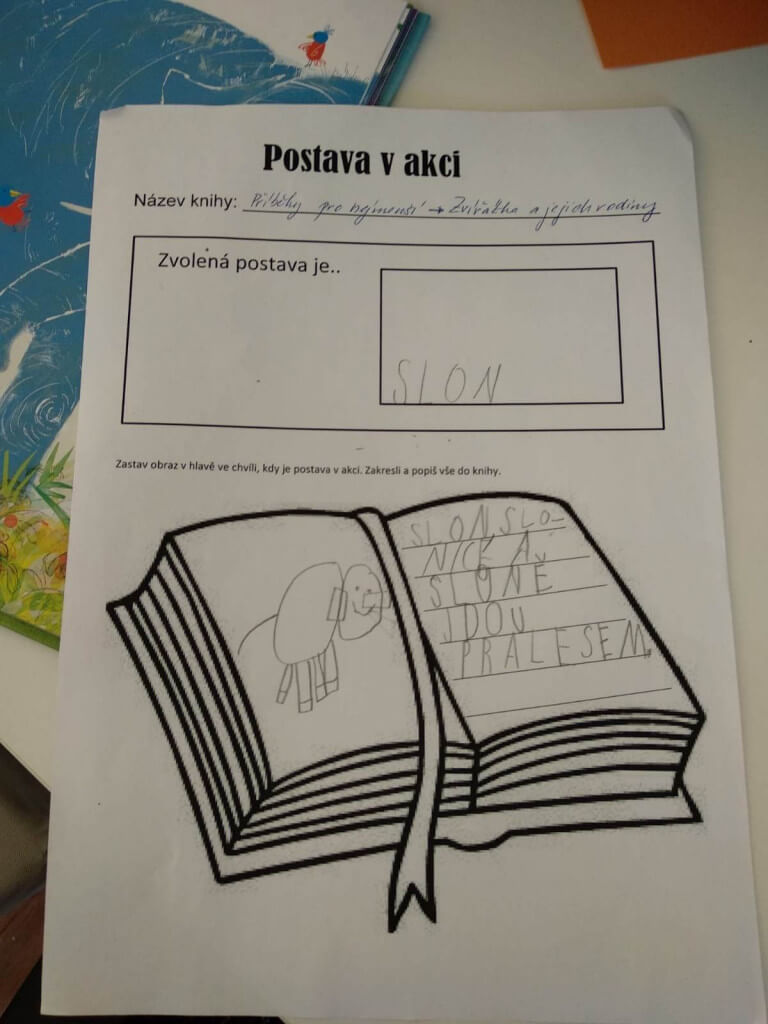 Postava v akci
Název knihy: Příběhy pro nejmenší → Zvířátka a jejich rodiny
Zvolená postava je..
SLON
Zastav obraz v hlavě ve chvíli, kdy je postava v akci. Zakresli a popiš vše do knihy.
SLON, SLO-
NICE A
SLŮNĚ
JDOU
PRALESEM.